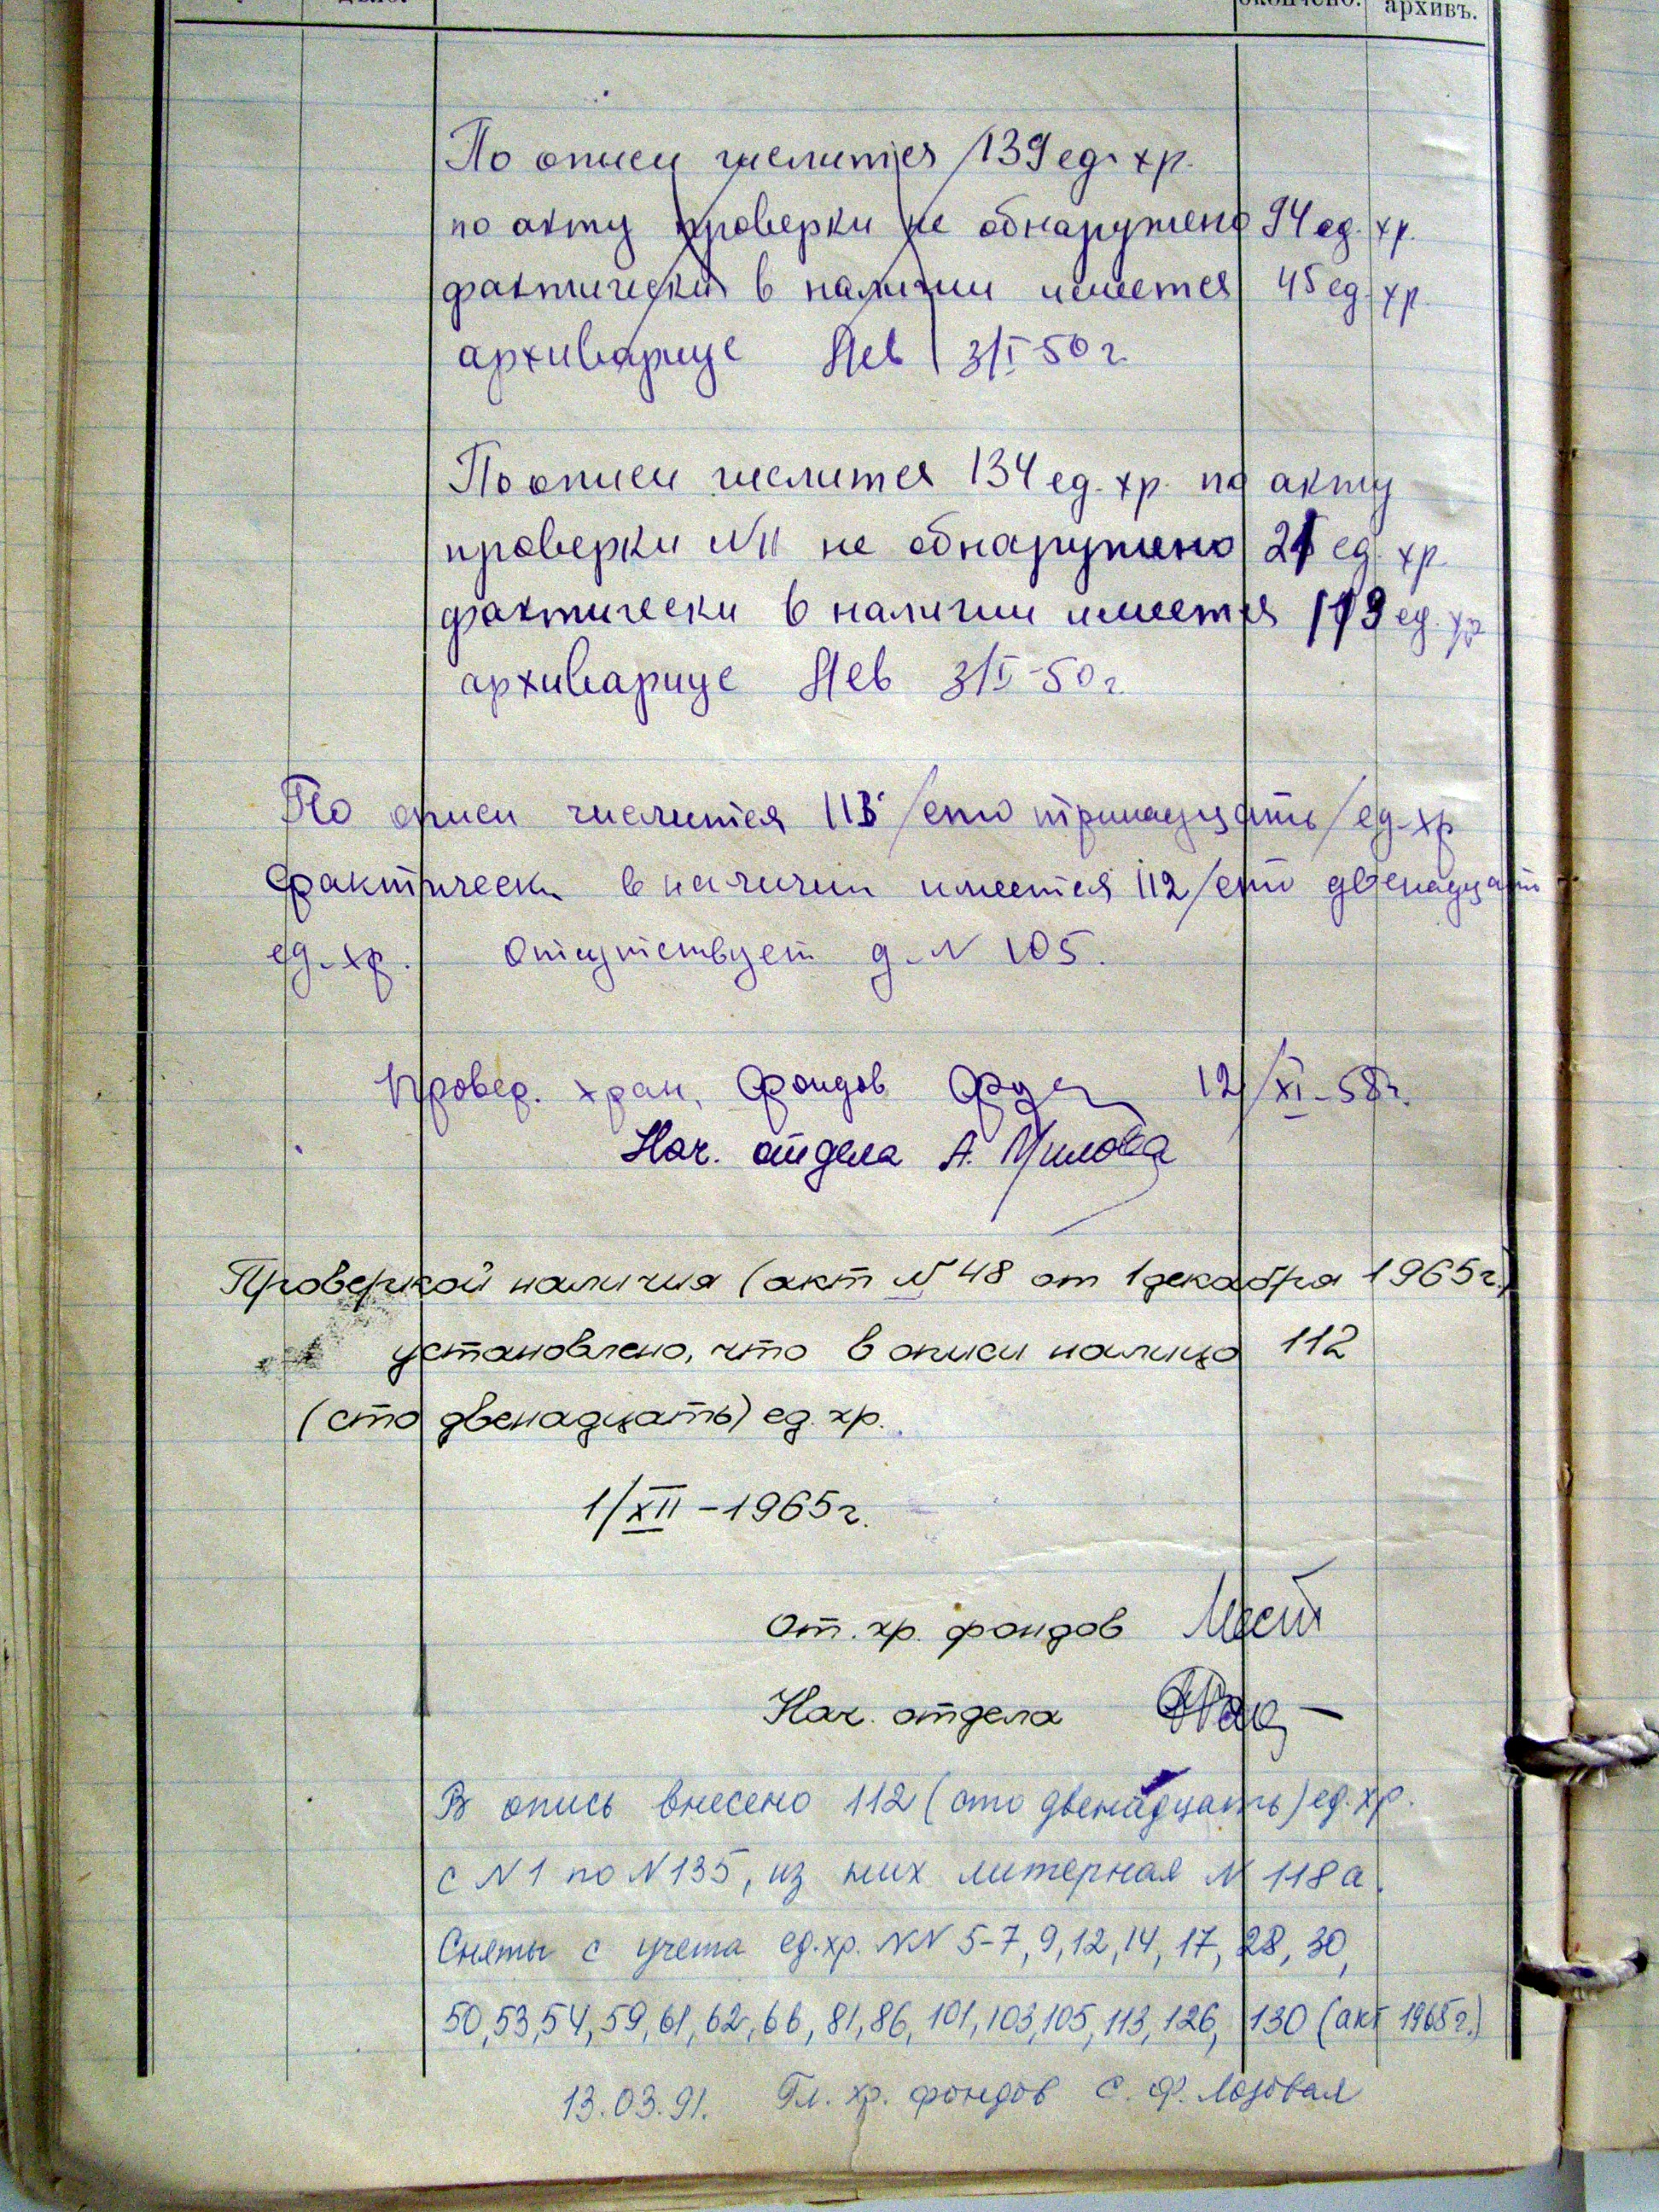 окончено. архивъ.
По описи числится 139 ед. хр.
по акту проверки не обнаружено 94 ед. хр.
фактически в наличии имеется 45 ед. хр.
архивариус 3/I 50 г.
По описи числится 134 ед. хр. по акту
проверки N 11 не обнаружено 21 ед. хр.
фактически в наличии имеется 113 ед. хр.
архивариус 3/I-50 г.
По описи числится 113 /сто тринадцать/ ед. хр
фактически в наличии имеется 112 /сто двенадцать
ед. хр. Отсутствует д. N 105.
Провер. хран. фондов 12/XI-58 г.
Нач. отдела А.
Проверкой наличия (акт N 48 от 1 декабря 1965 г.)
установлено, что в описи налицо 112
(сто двенадцать) ед. хр.
1/XII - 1965 г.
От. хр. фондов
Нач. отдела
В опись внесено 112 (сто двенадцать) ед. хр.
с N 1 по N 135, из них литерная N 118а.
Сняты с учета ед. хр. NN 5-7, 9, 12, 14, 17, 28, 30,
50, 53, 54, 59, 61, 62, 66, 81, 86, 101, 103, 105, 113, 126, 130 (акт 1965 г.)
13.03.91. Гл. хр. фондов С. Ф. Лозовая